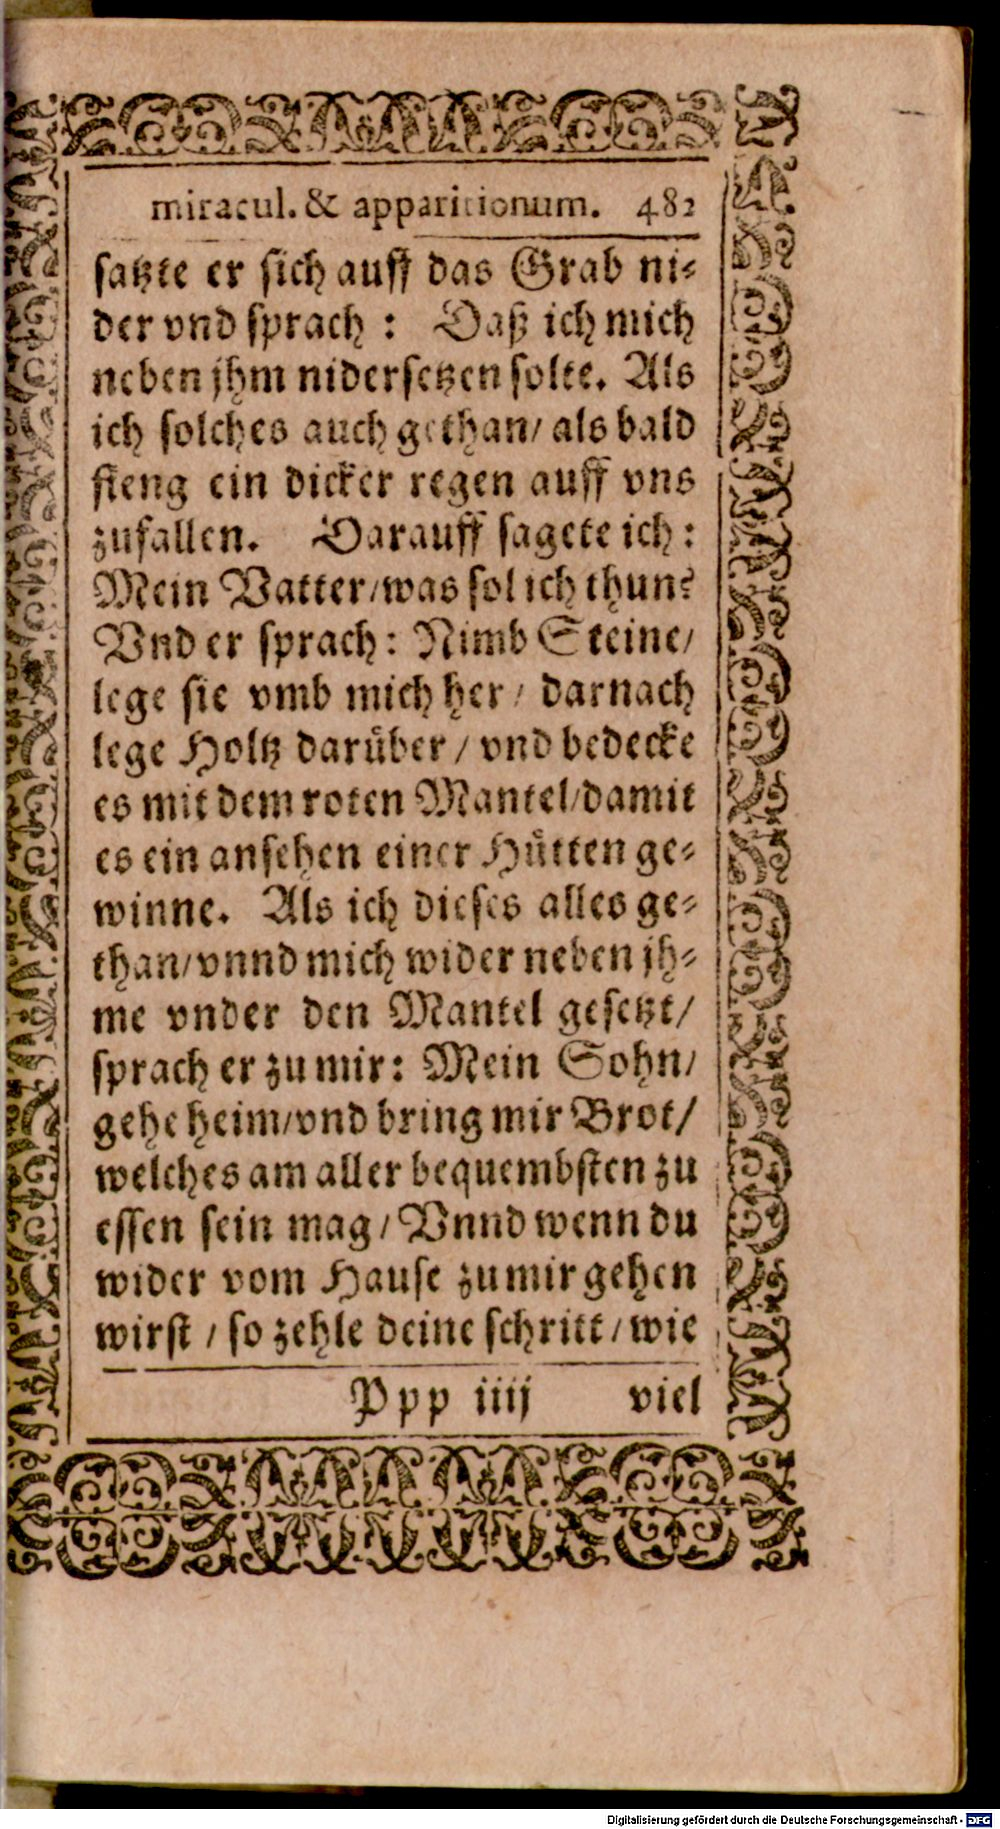 miracul. & apparitionum. 482
satzte er sich auff das Grab ni-
der vnd sprach : Daß ich mich
neben jhm nidersetzen solte. Als
ich solches auch gethan/ als bald
fieng ein dicker regen auff vns
zufallen. Darauff sagete ich:
Mein Vatter/was sol ich thun?
Vnd er sprach: Nimb Steine/
lege sie vmb mich her/ darnach
lege Holtz darüber/ vnd bedecke
es mit dem roten Mantel/damit
es ein ansehen einer Hütten ge-
winne. Als ich dieses alles ge-
than/vnnd mich wider neben jh-
me vnder den Mantel gesetzt/
sprach er zu mir: Mein Sohn/
gehe heim/vnd bring mir Brot/
welches am aller bequembsten zu
essen sein mag/ Vnnd wenn du
wider vom Hause zu mir gehen
wirst / so zehle deine schritt/ wie
Ppp iiij viel
Digitalisierung gefördert durch die Deutsche Forschungsgemeinschaft - DFG